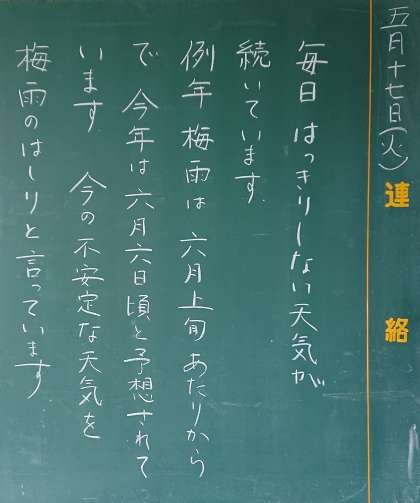 五月十七日(火)
連絡
毎日 はっきりしない天気が
続いています
例年 梅雨は 六月上旬 あたりから
で 今年は 六月六日頃と予想されて
います 今の不安定な天気を
梅雨のはしりと言っています